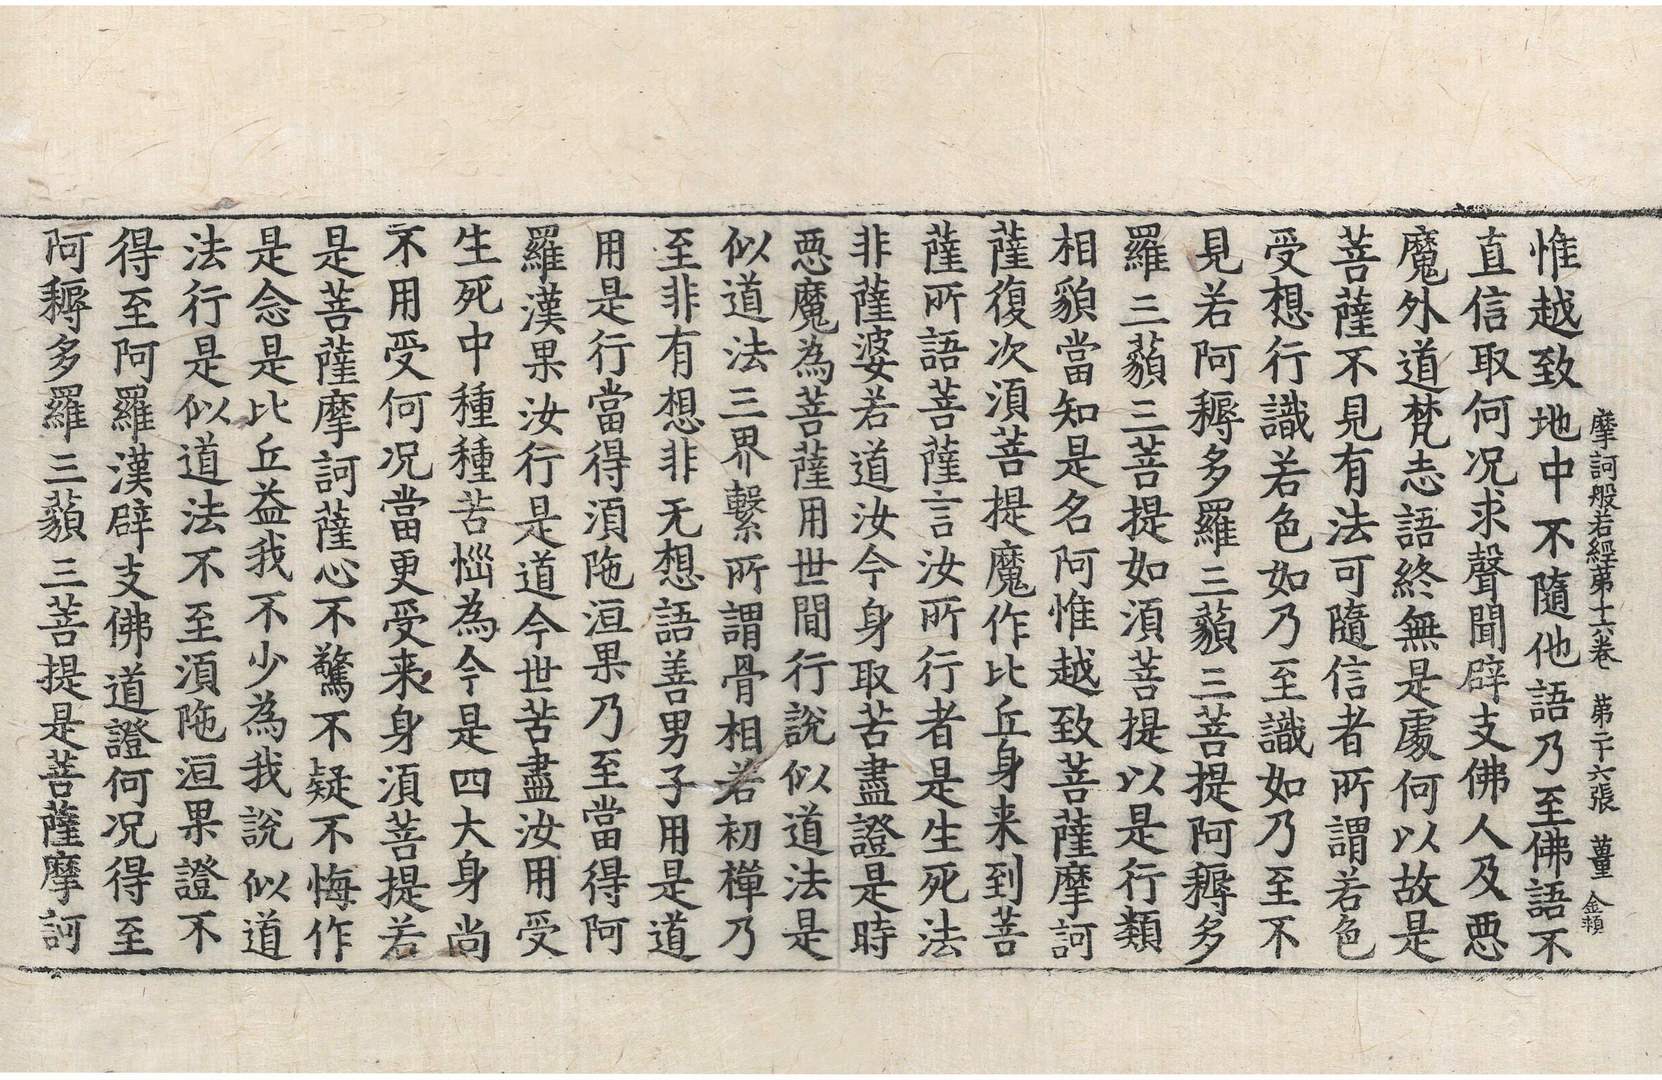 摩訶般若經苐十六卷 苐二十六張 董 金頼
惟越致地中不隨他語乃至佛語不
直信取何况求聲聞辟支佛人及悪
魔外道梵志語終無是處何以故是
菩薩不見有法可隨信者所謂若色
受想行識若色如乃至識如乃至不
見若阿耨多羅三藐三菩提阿耨多
羅三藐三菩提如須菩提以是行類
相貌當知是名阿惟越致菩薩摩訶
薩復次須菩提魔作比丘身来到菩
薩所語菩薩言汝所行者是生死法
非薩婆若道汝今身取苦盡證是時
悪魔為菩薩用世間行說似道法是
似道法三界繫所謂骨相若初禪乃
至非有想非无想語善男子用是道
用是行當得須陁洹果乃至當得阿
羅漢果汝行是道今世苦盡汝用受
生死中種種苦惱為今是四大身尚
不用受何况當更受来身須菩提若
是菩薩摩訶薩心不驚不疑不悔作
是念是比丘益我不少為我說似道
法行是似道法不至須陁洹果證不
得至阿羅漢辟支佛道證何况得至
阿耨多羅三藐三菩提是菩薩摩訶